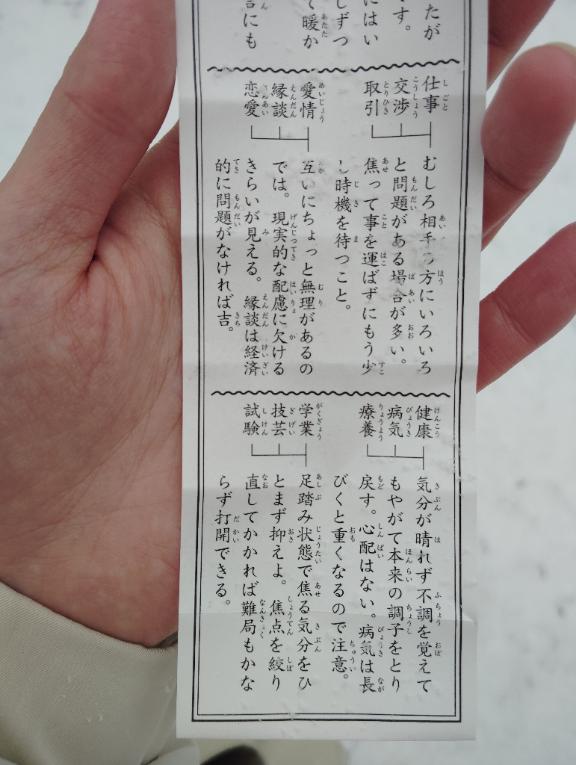 たが
す。
にはい
しずつ
て暖か
にも
仕事
交渉
取引
むしろ相手の方にいろいろ
と問題がある場合が多い。
焦って事を運ばずにもう少
し時機を待つこと。
愛情
縁談
恋愛
互いにちょっと無理があるの
では。現実的な配慮に欠ける
きらいが見える。縁談は経済
的に問題がなければ吉。
健康
病気
療養
気分が晴れず不調を覚えて
もやがて本来の調子をとり
戻す。心配はない。病気は長
びくと重くなるので注意。
学業
技芸
試験
足踏み状態で焦る気分をひ
とまず抑えよ。焦点を絞り
直してかかれば難局もかな
らず打開できる。